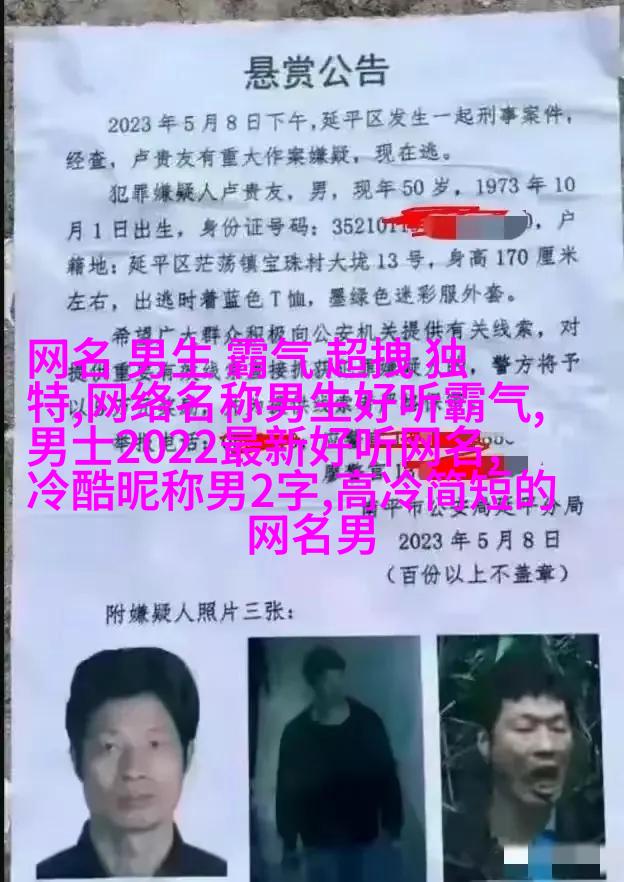 悬赏公告
2023年5月8日下午,延平区发生一起刑事案件,
经查，卢贵友有重大作案嫌疑，现在逃。
犯罪嫌疑人卢贵友，男，现年50岁，1973年10
月1日出生，身份证号码：3521011
，户
籍地：延平区茫荡镇宝珠村大垅13号，身高170厘米
左右，出逃时着蓝色T恤，墨绿色迷彩服外套。
希望广大群众积极向公安机关提供有关线索，对
警方将予
网名 男生 霸气 超拽 独
特,网络名称男生好听霸气,
男士2022最新好听网名,
冷酷昵称男2字,高冷简短的
网名男
南平市公安局延平分局
2023年5月8日
（百份以上不盖章）
附嫌疑人照片三张：